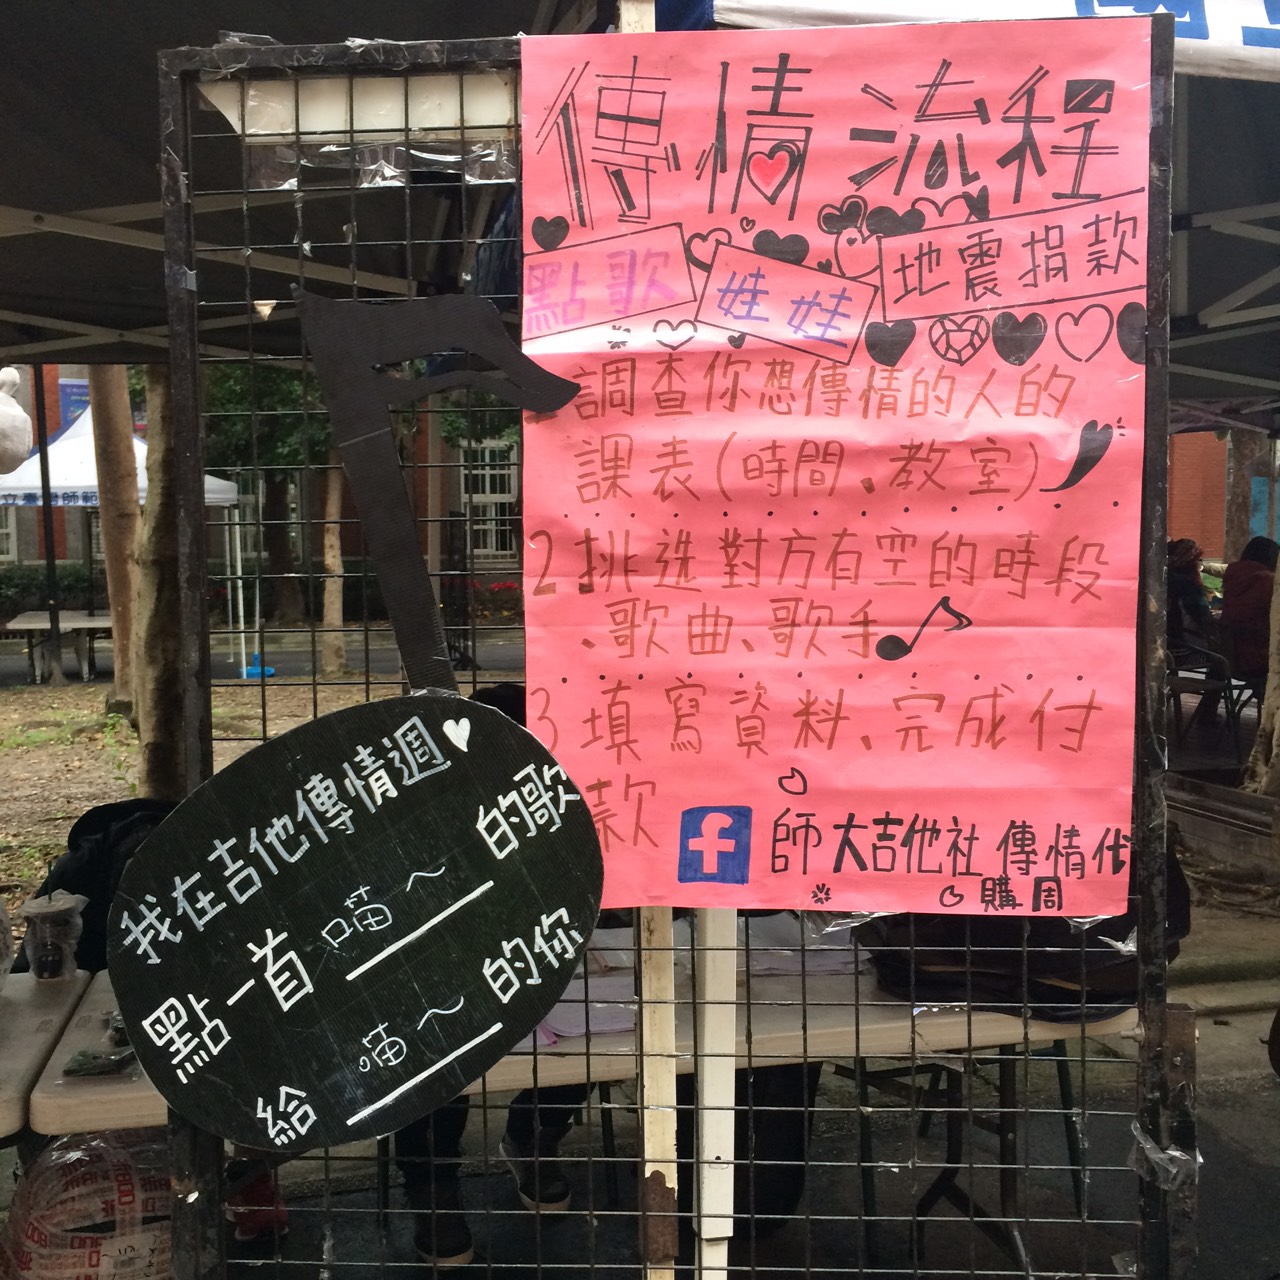 傳情流程
點歌
娃娃
地震捐款
調查你想傳情的人的
課表(時間、教室)
2挑选對方有空的時段
、歌曲、歌手
3填寫資料、完成付
款
f 師大吉他社傳情代
購周
我在吉他傳情週
點一首喵～的歌
給喵～的你
立臺灣師範